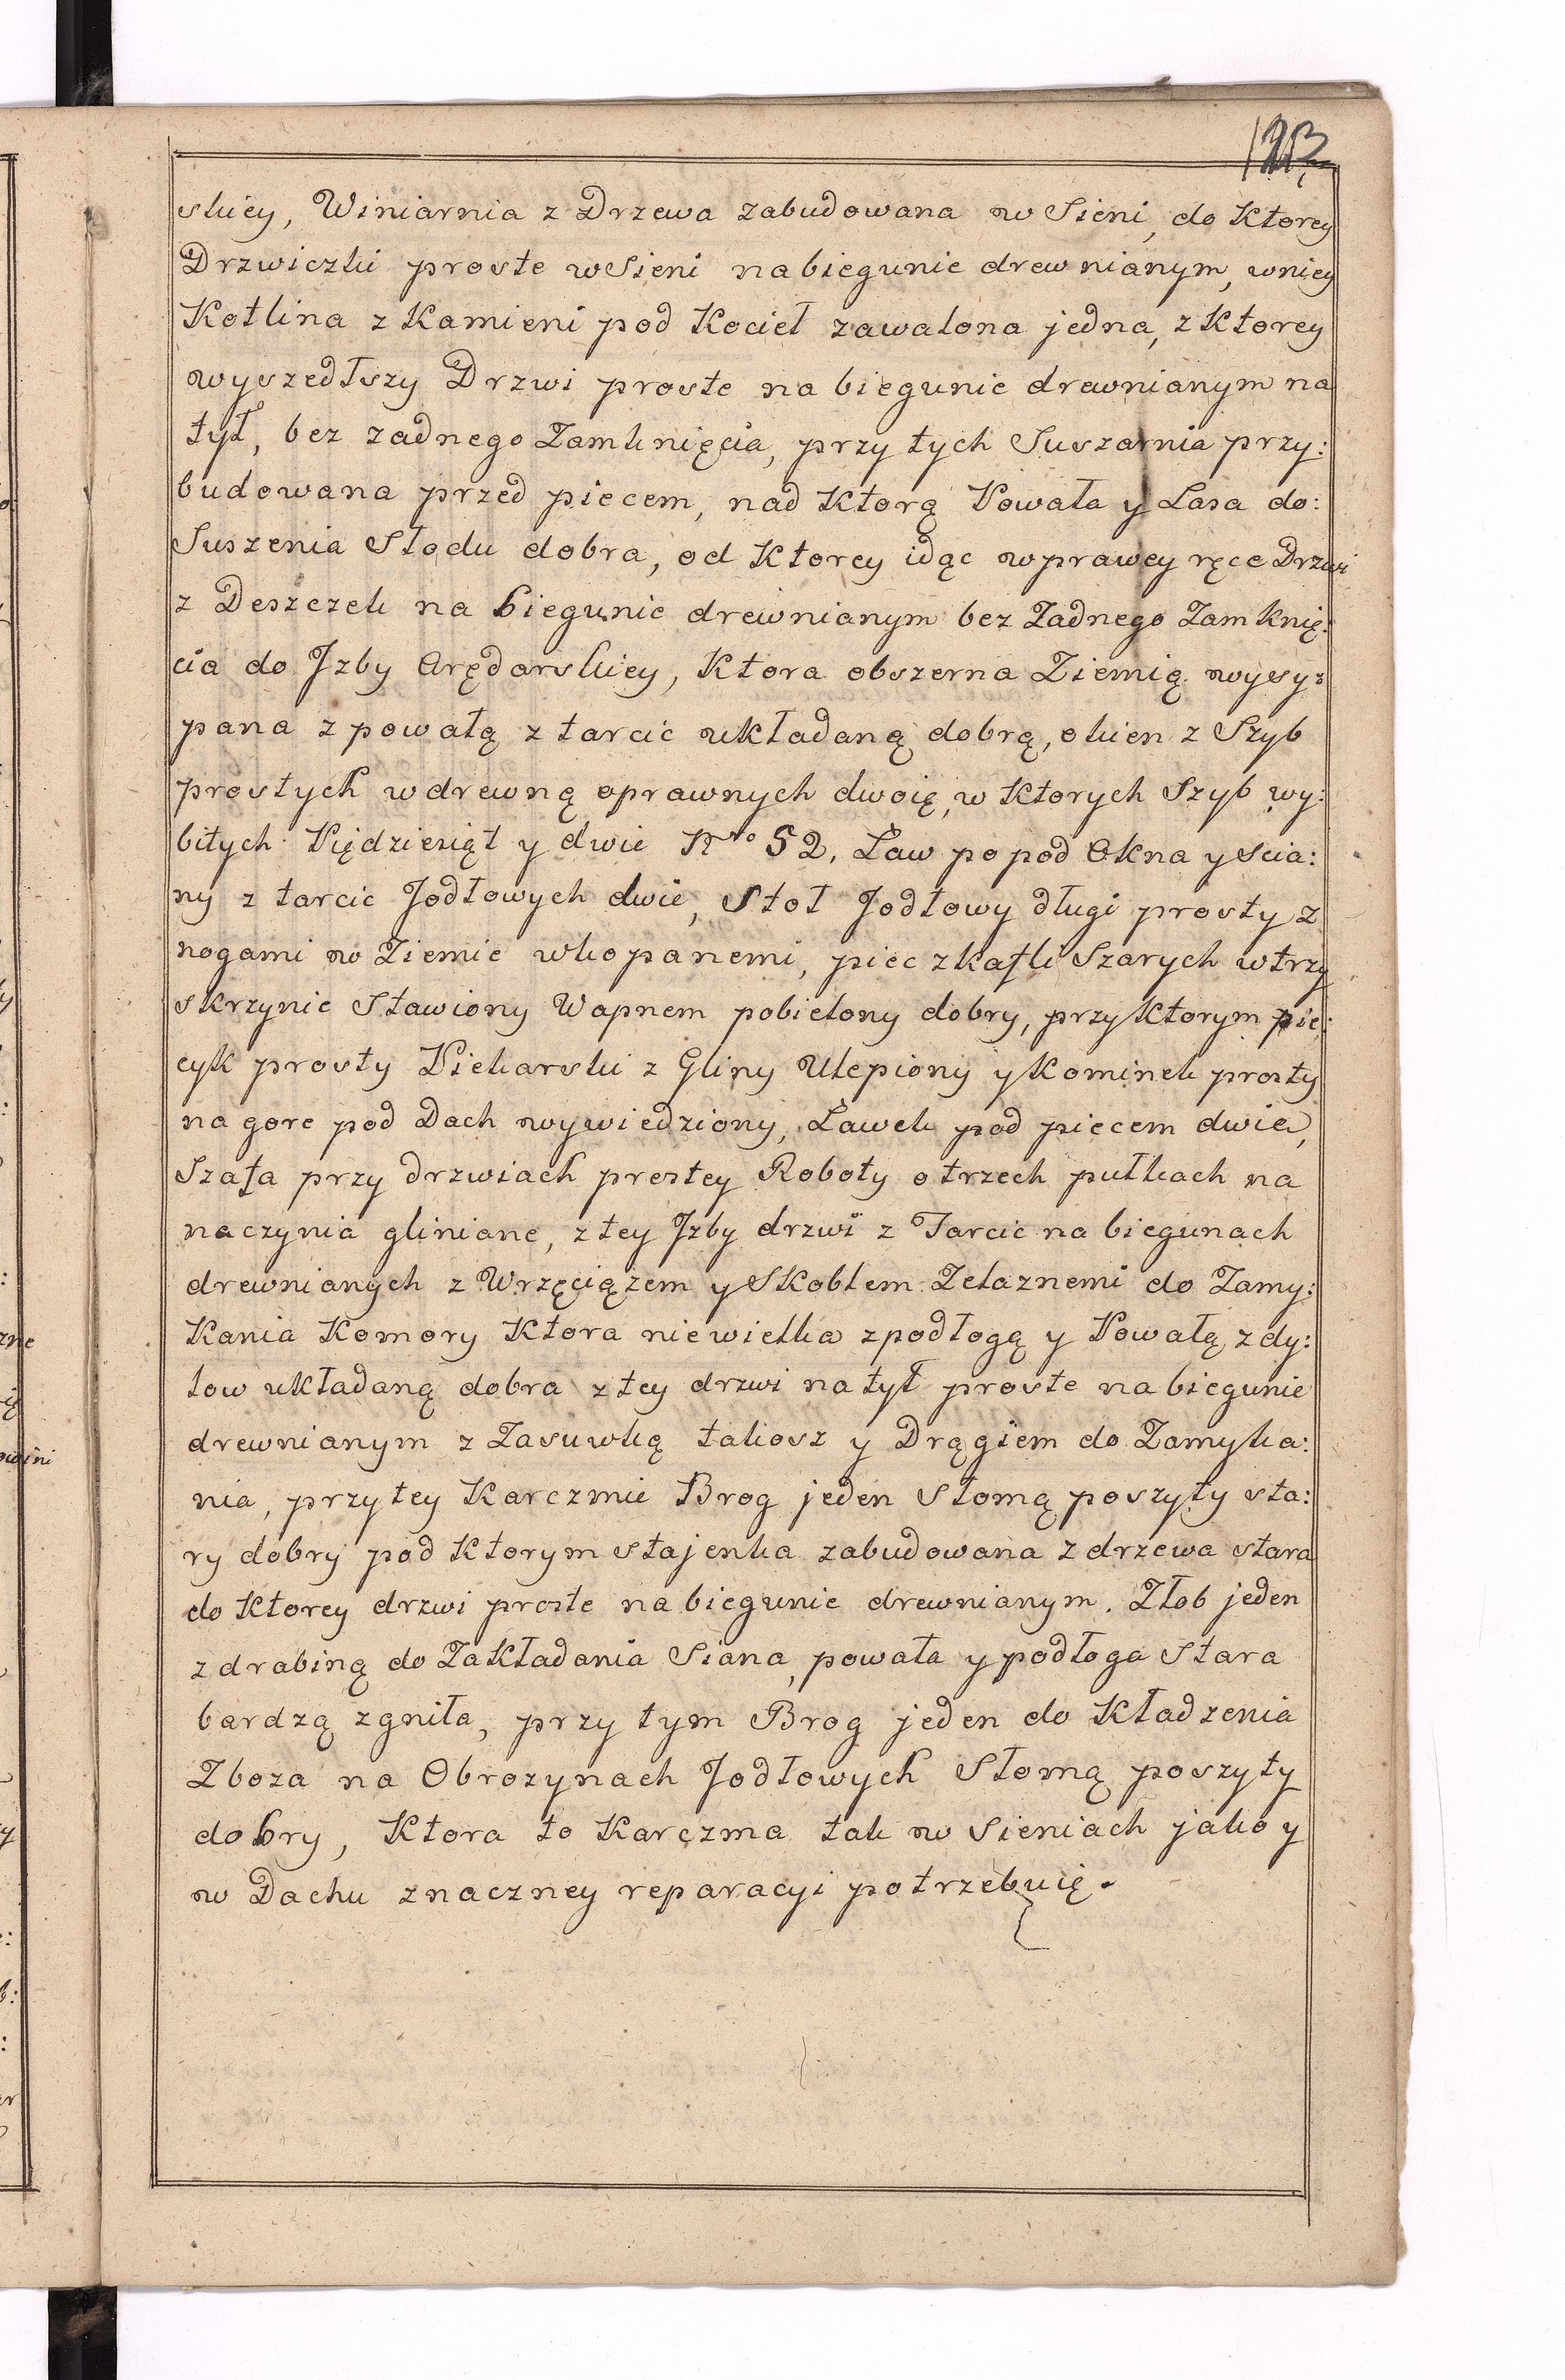 skiey, Winiarnia z Drzewa zabudowana w Sieni, do Ktorey
Drzwiczki proste w Sieni na biegunie drewnianym, wniey
Kotlina z Kamieni pod Kocieł zawalona jedna, z Ktorey
wyszedłszy Drzwi proste na biegunie drewnianym na
tył, bez zadnego Zamknięcia, przy tych Suszarnia przy:
budowana przed piecem, nad Ktorą Powała y Lasa do:
Suszenia Słodu dobra, od Ktorey idąc w prawey ręce Drzwi
z Deszczek na biegunie drewnianym bez Zadnego Zamknię:
cia do Jzby Arędarskiey, Ktora obszerna Ziemią wysy:
pana z powałą z tarcic układaną dobrą, okien z Szyb
prostych w drewną oprawnych dwoię, w Ktorych Szyb wy:
bitych Piędziesiąt y dwie Nro 52, Ław po pod Okna y Scia:
ny z tarcic Jodłowych dwie, Stoł Jodłowy długi prosty z
nogami w Ziemie wkopanemi, piec z kafli Szarych w trzy
skrzynie Stawiony Wapnem pobielony dobry, przy Ktorym pie:
cyk prosty Piekarski z Gliny Ulepiony y Kominek prosty
na gore pod Dach wywiedziony, Ławek pod piecem dwie,
Szafa przy drzwiach prostey Roboty o trzech pułkach na
naczynia gliniane, z tey Jzby drzwi z Tarcic na biegunach
drewnianych z Wrzęciązem y Skoblem Zelaznemi do Zamy:
Kania Komory Ktora niewielka z podłogą y Powałą z dy:
low układaną dobra z tey drzwi na tył proste na biegunie
drewnianym z Zasuwką takosz y Drągiem do Zamyka:
nia, przy tey Karczmie Brog jeden Słomą poszyty sta:
ry dobry pod Ktorym stajenka zabudowana z drzewa stara
do Ktorey drzwi proste na biegunie drewnianym. Złob jeden
z drabiną do Zakładania Siana, powała y podłoga Stara
bardzą zgniła, przy tym Brog jeden do Kładzenia
Zboza na Obrozynach Jodłowych Słomą poszyty
dobry, Ktora to Karczma tak w Sieniach jako y
w Dachu znaczney reparacyi potrzebuię.